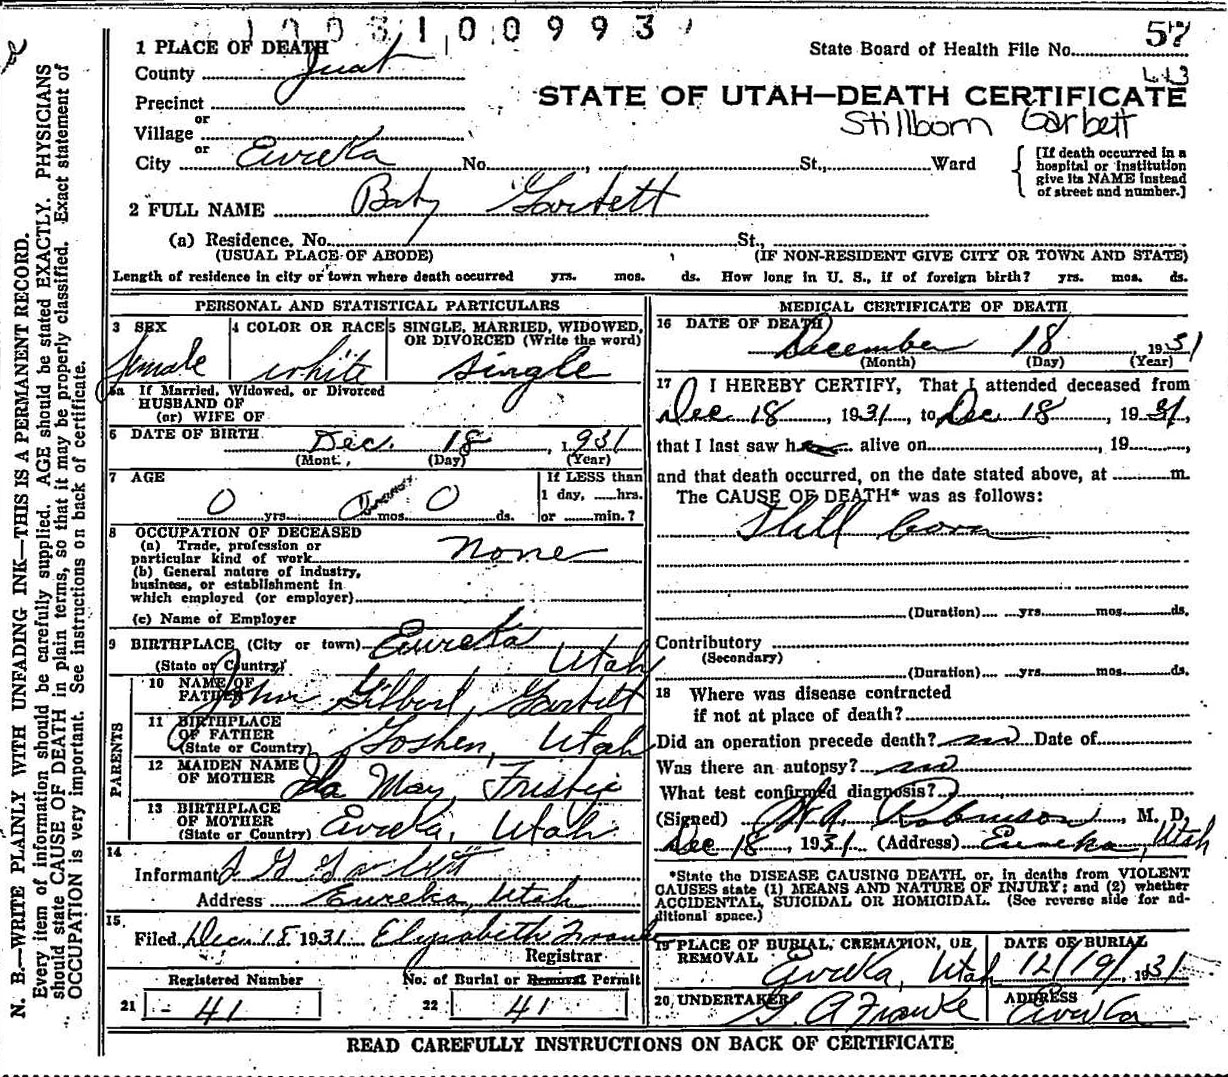 1003100993
1 PLACE OF DEATH
State Board of Health File No. 57
County Juab
Precinct
STATE OF UTAH—DEATH CERTIFICATE
or
Stillborn Garbett
Village
or
City Eureka No. , St., Ward
[If death occurred in a hospital or institution give its NAME instead of street and number.]
2 FULL NAME Baby Garbett
(a) Residence, No. St.,
(USUAL PLACE OF ABODE) (IF NON-RESIDENT GIVE CITY OR TOWN AND STATE)
Length of residence in city or town where death occurred yrs. mos. ds. How long in U. S., if of foreign birth? yrs. mos. ds.
PERSONAL AND STATISTICAL PARTICULARS
3 SEX
female
4 COLOR OR RACE
white
5 SINGLE, MARRIED, WIDOWED,
OR DIVORCED (Write the word)
single
5a If Married, Widowed, or Divorced
HUSBAND OF
(or) WIFE OF
6 DATE OF BIRTH Dec. 18 1931
(Month) (Day) (Year)
7 AGE
0 yrs. 0 mos. 0 ds.
If LESS than
1 day, hrs.
or min.?
8 OCCUPATION OF DECEASED
(a) Trade, profession or
particular kind of work none
(b) General nature of industry,
business, or establishment in
which employed (or employer)
(c) Name of Employer
9 BIRTHPLACE (City or town) Eureka
(State or Country) Utah
PARENTS
10 NAME OF
FATHER John Gilbert Garbett
11 BIRTHPLACE
OF FATHER
(State or Country) Goshen, Utah
12 MAIDEN NAME
OF MOTHER Ida May Frisbie
13 BIRTHPLACE
OF MOTHER
(State or Country) Eureka, Utah
14
Informant J G Garbett
Address Eureka, Utah
15
Filed Dec 18 1931 Elizabeth Franke
Registrar
Registered Number No. of Burial or Removal Permit
21 - 41 22 41
MEDICAL CERTIFICATE OF DEATH
16 DATE OF DEATH
December 18 1931
(Month) (Day) (Year)
17 I HEREBY CERTIFY, That I attended deceased from
Dec 18, 1931, to Dec 18, 1931,
that I last saw her alive on 19 ,
and that death occurred, on the date stated above, at m.
The CAUSE OF DEATH* was as follows:
Still born
(Duration) yrs. mos. ds.
Contributory
(Secondary)
(Duration) yrs. mos. ds.
18 Where was disease contracted
if not at place of death?
Did an operation precede death? no Date of
Was there an autopsy? no
What test confirmed diagnosis?
(Signed) Robinson, M. D.
Dec 18, 1931 (Address) Eureka, Utah
*State the DISEASE CAUSING DEATH, or, in deaths from VIOLENT
CAUSES state (1) MEANS AND NATURE OF INJURY; and (2) whether
ACCIDENTAL, SUICIDAL OR HOMICIDAL. (See reverse side for ad-
ditional space.)
19 PLACE OF BURIAL, CREMATION, OR
REMOVAL Eureka, Utah
DATE OF BURIAL
12/19/, 1931
20 UNDERTAKER G. A Franke
ADDRESS Eureka
READ CAREFULLY INSTRUCTIONS ON BACK OF CERTIFICATE
N. B.—WRITE PLAINLY WITH UNFADING INK—THIS IS A PERMANENT RECORD.
Every item of information should be carefully supplied. AGE should be stated EXACTLY. PHYSICIANS
should state CAUSE OF DEATH in plain terms, so that it may be properly classified. Exact statement of
OCCUPATION is very important. See instructions on back of certificate.